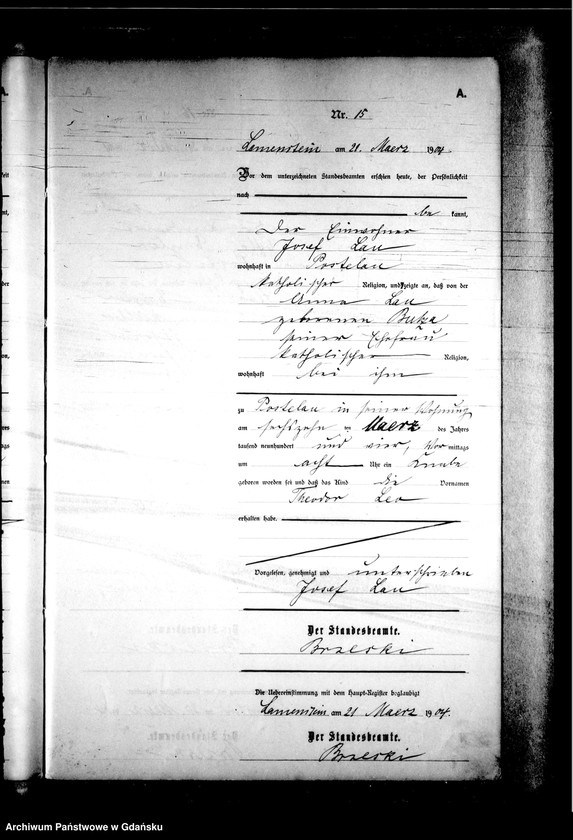 A.
Nr. 15
Lamenstein am 21. Maerz 1904.
Vor dem unterzeichneten Standesbeamten erschien heute, der Persönlichkeit
nach
be kannt,
Der Einwohner
Josef Lau
wohnhaft in Postelau
katholischer Religion, und zeigte an, daß von der
Anna Lau
geborenen
seiner Ehefrau
katholischer Religion,
wohnhaft bei ihm
zu Postelau in seiner Wohnung
am sechszehn ten Maerz des Jahres
tausend neunhundert und vier, Vor mittags
um acht Uhr ein Knabe
geboren worden sei und daß das Kind die Vornamen
Theodor Leo
erhalten habe.
Vorgelesen, genehmigt und unterschrieben
Josef Lau
Der Standesbeamte.
Die Uebereinstimmung mit dem Haupt-Register beglaubigt
Lamenstein am 21 Maerz 1904.
Der Standesbeamte.
Archiwum Państwowe w Gdańsku